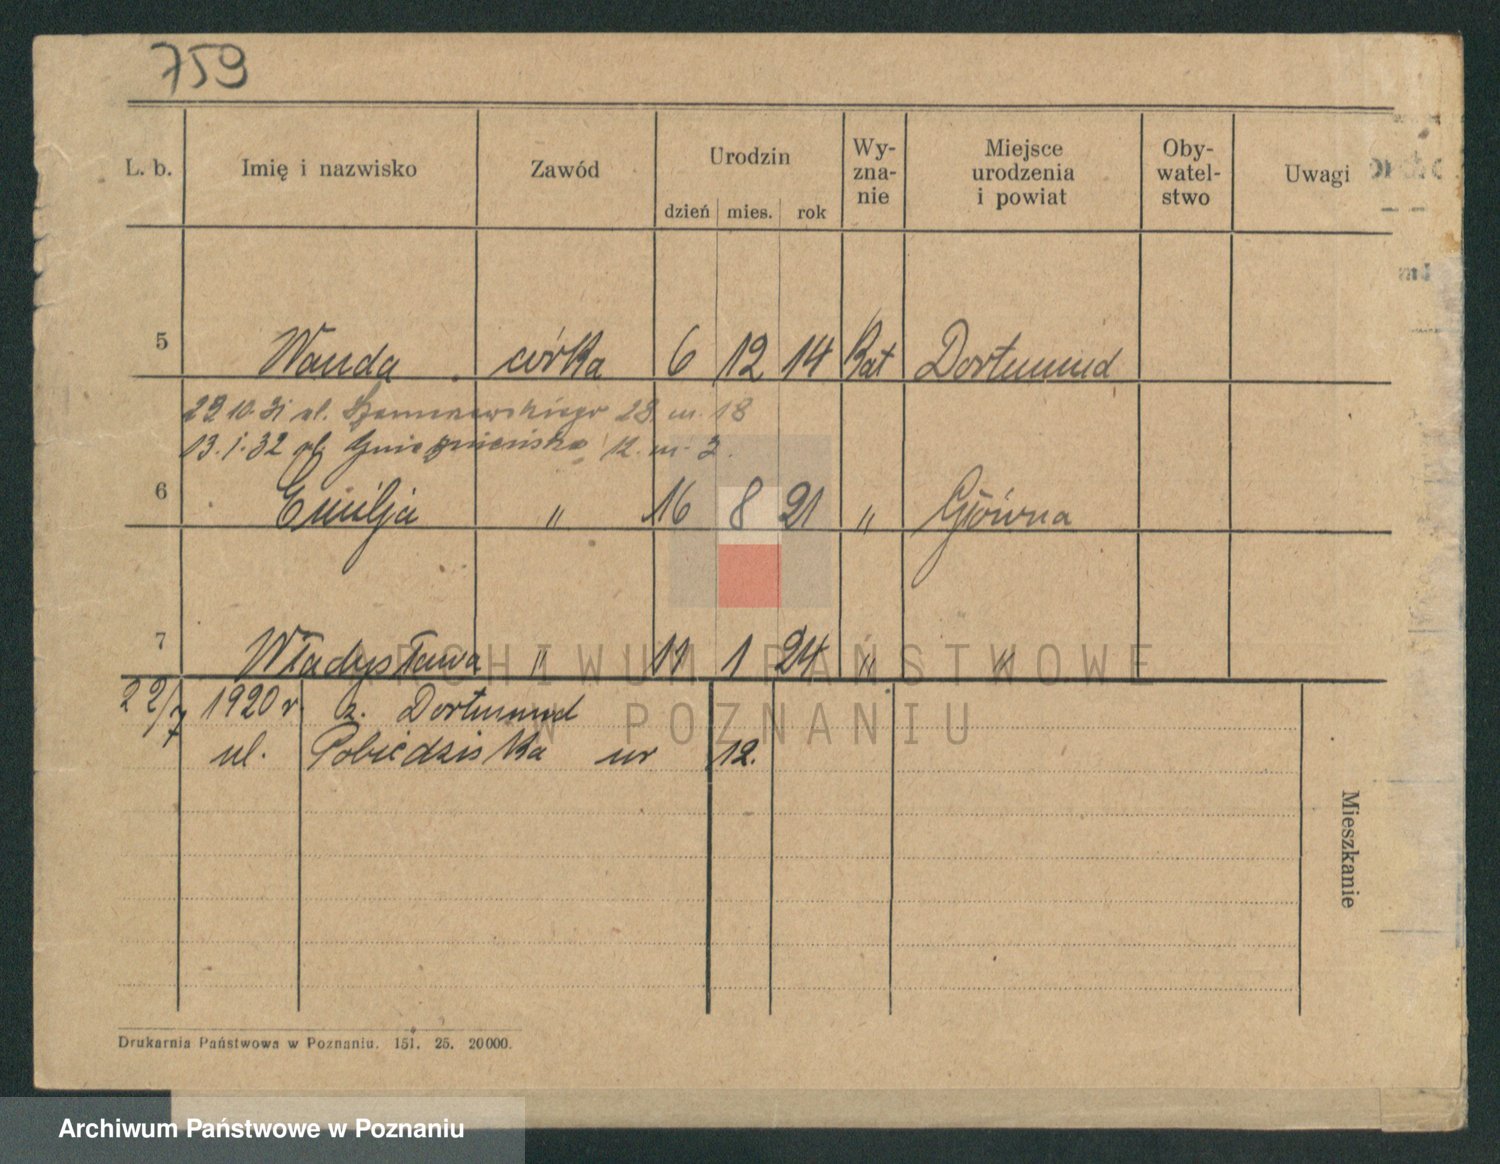 759
L. b. Imię i nazwisko Zawód Urodzin Wy-zna-nie Miejsce urodzenia i powiat Oby-watel-stwo Uwagi
dzień mies. rok
5 Wanda córka 6 12 14 Kat Dortmund
29 10. 31 ul. 28 m. 18
13. 1. 32 ul. Gnieźnieńska 12. m. 3.
6 Emilja " 16 8 21 " Główna
7 Władysława " 11 1 24 " "
22/7 1920 r. z. Dortmund
ul. Pobiedziska nr 12.
Mieszkanie
Drukarnia Państwowa w Poznaniu. 151. 25. 20000.
ARCHIWUM PAŃSTWOWE
W POZNANIU
Archiwum Państwowe w Poznaniu